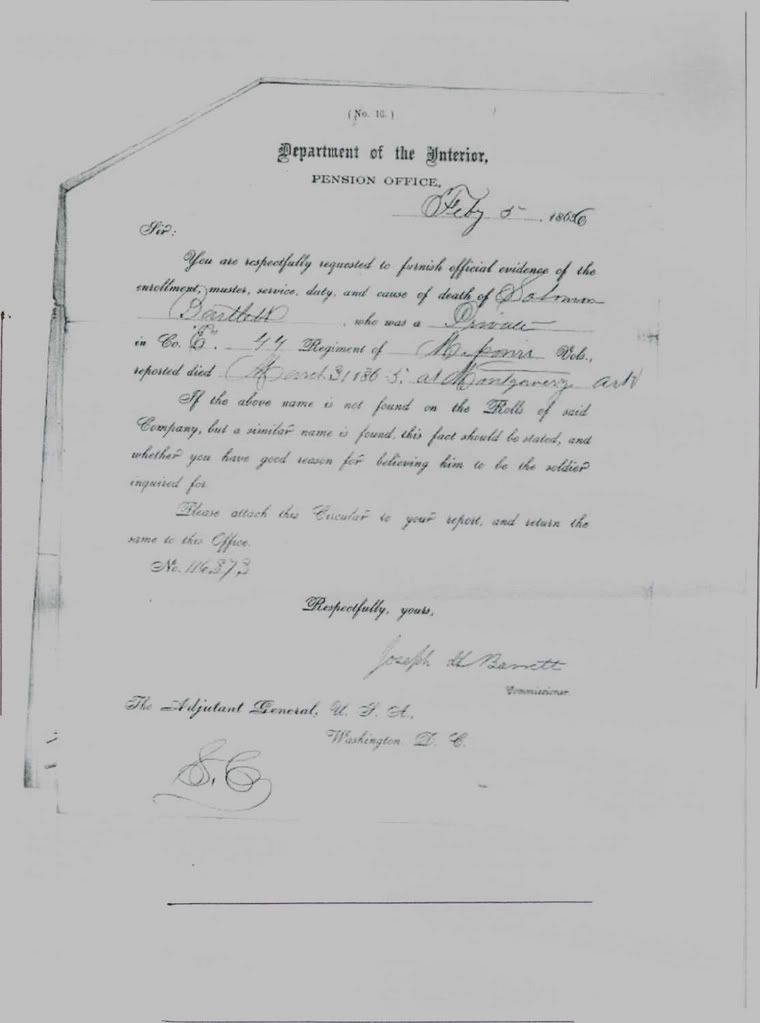 (No. 16.)
Department of the Interior,
PENSION OFFICE,
Feby 5, 1866
Sir:
You are respectfully requested to furnish official evidence of the
enrollment, muster, service, duty, and cause of death of Solomon
Bartlett, who was a Private
in Co. "E". 44 Regiment of Missouri Vols.,
reported died March 31 1865. at Montgomery Ark
If the above name is not found on the Rolls of said
Company, but a similar name is found, this fact should be stated, and
whether you have good reason for believing him to be the soldier
inquired for.
Please attach this Circular to your report, and return the
same to this Office.
No. 116,873
Respectfully, yours,
Joseph H Barrett
Commissioner.
The Adjutant General, U. S. A.,
Washington D. C.
S. C